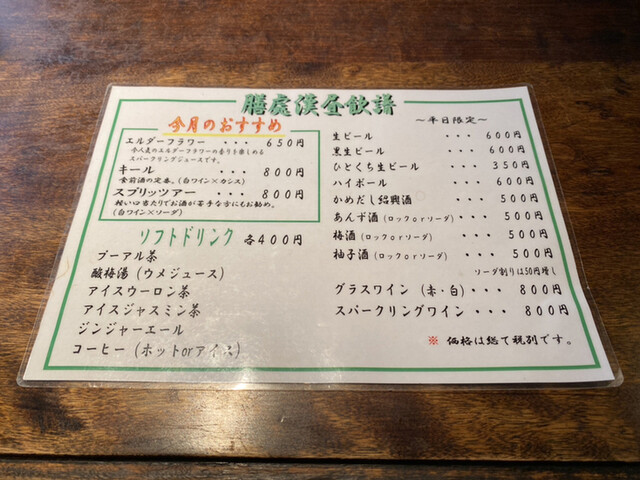 膳處漢昼飲譜
～平日限定～
今月のおすすめ
エルダーフラワー ・・・ 650円
今人気のエルダーフラワーの香りを楽しめる
スパークリングジュースです。
キール ・・・ 800円
食前酒の定番。(白ワイン×カシス)
スプリッツアー ・・・ 800円
軽い口当たりでお酒が苦手な方にもお勧め。
(白ワイン×ソーダ)
ソフトドリンク 各400円
プーアル茶
酸梅湯(ウメジュース)
アイスウーロン茶
アイスジャスミン茶
ジンジャーエール
コーヒー(ホットorアイス)
生ビール ・・・ 600円
黒生ビール ・・・ 600円
ひとくち生ビール ・・・ 350円
ハイボール ・・・ 600円
かめだし紹興酒 ・・・ 500円
あんず酒(ロックorソーダ) ・・・ 500円
梅酒(ロックorソーダ) ・・・ 500円
柚子酒(ロックorソーダ) ・・・ 500円
ソーダ割りは50円増し
グラスワイン(赤・白)・・・ 800円
スパークリングワイン ・・・ 800円
※ 価格は総て税別です。